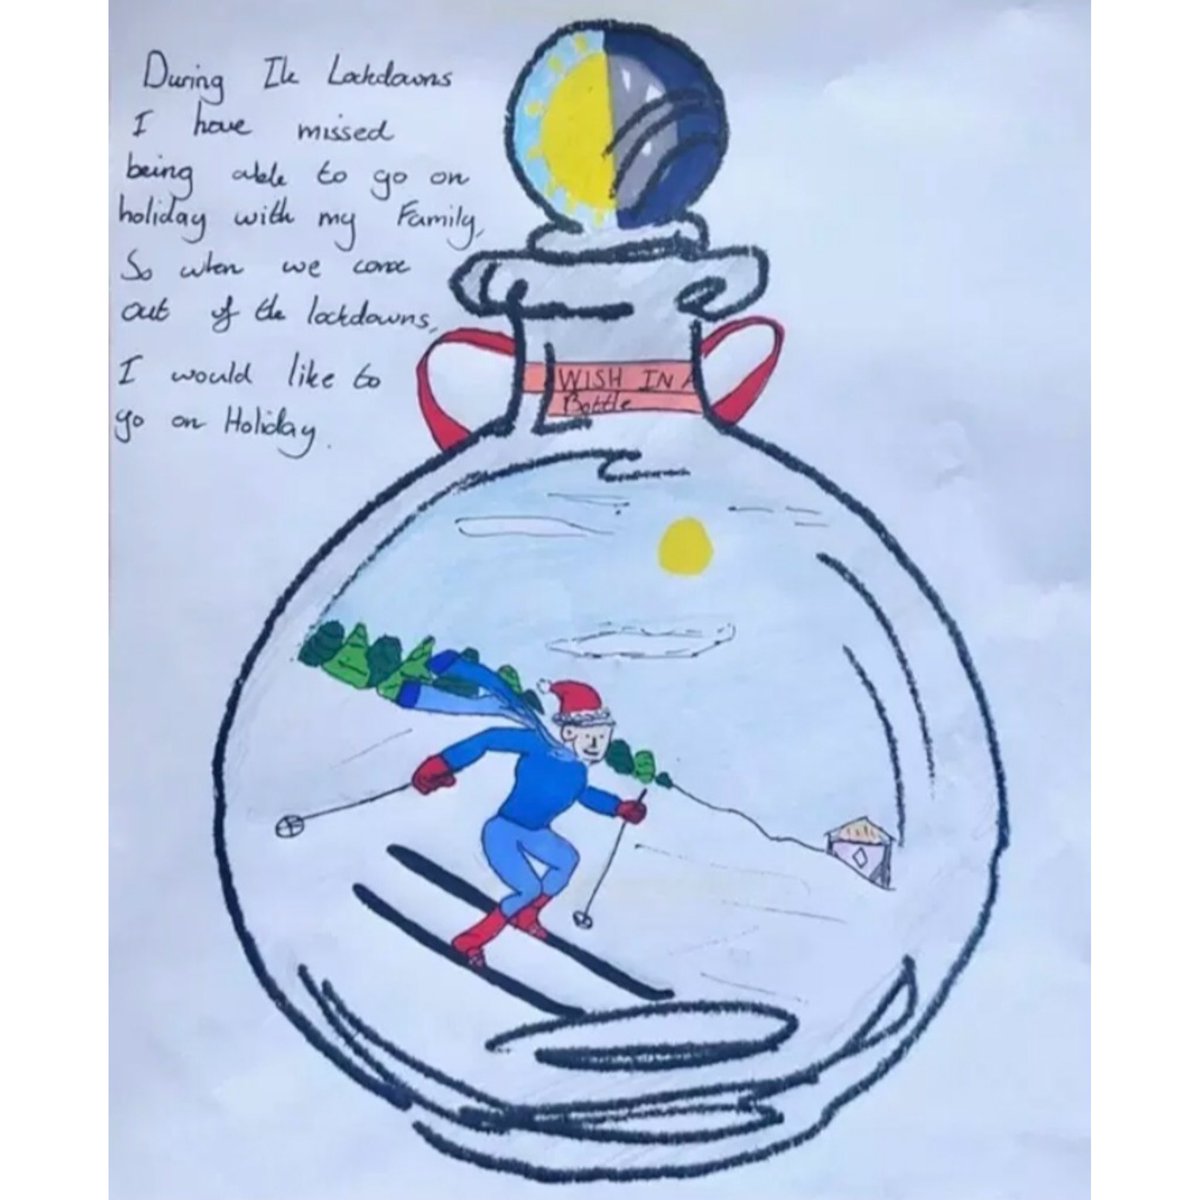 During the Lockdowns
I have missed
being able to go on
holiday with my Family,
So when we come
out of the lockdowns,
I would like to
go on Holiday.
WISH IN A
Bottle